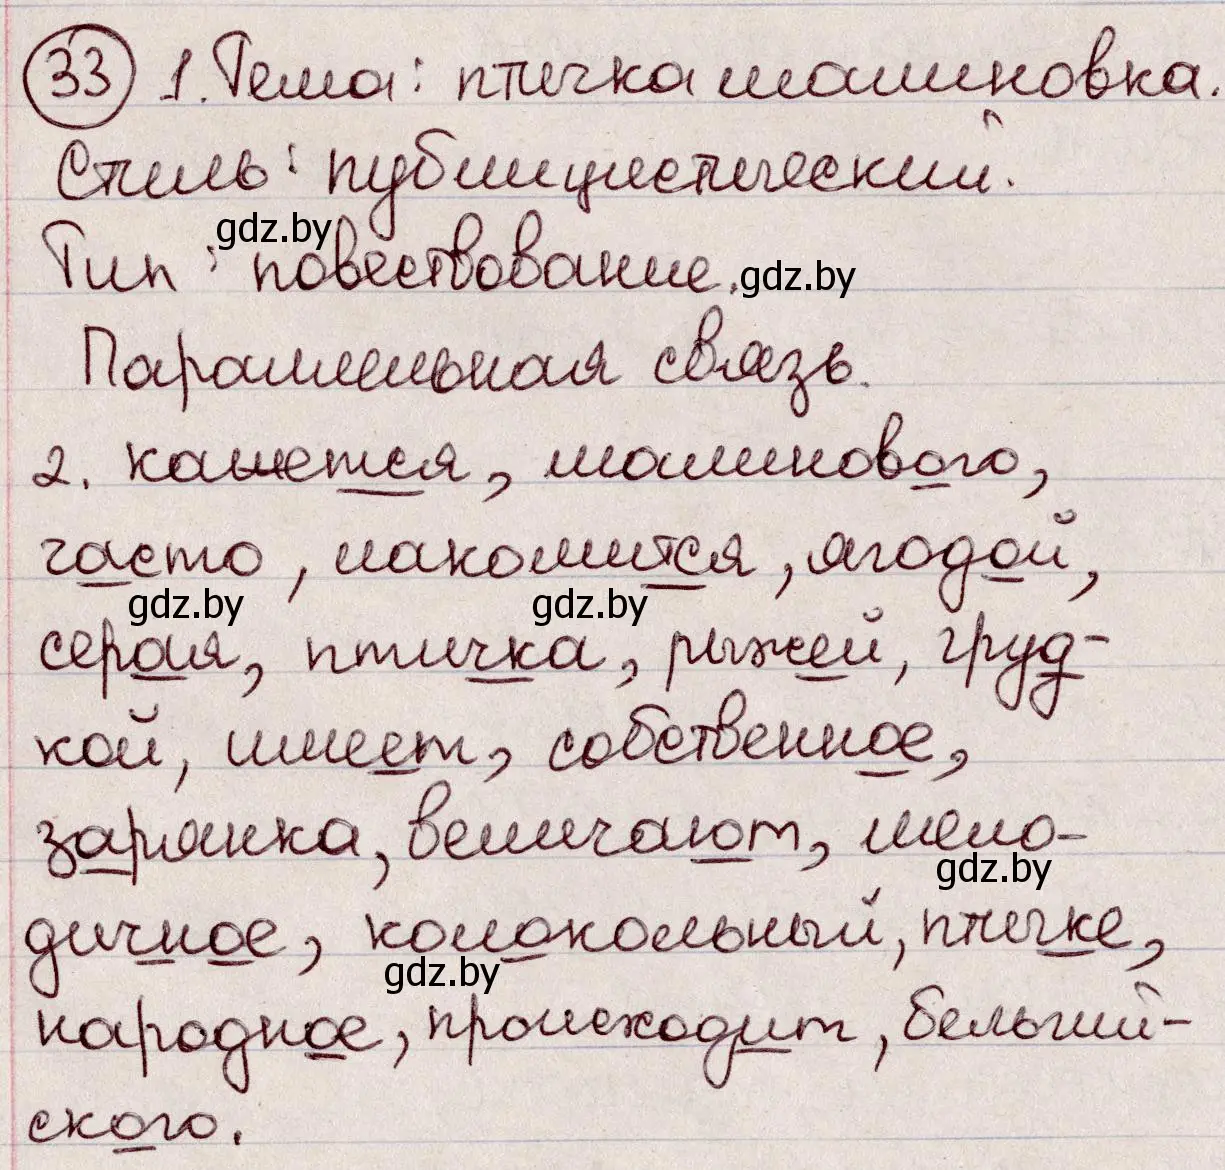 33 1. Тема: птичка малиновка.
Стиль: публицистический.
gdz.by
Тип: повествование. gdz.by
Параллельная связь.
2. кажется, малинового,
часто, лакомится, ягодой,
gdz.by gdz.by
серая, птичка, рыжей, груд-
кой, имеет, собственное,
зарянка, величают, мело-
gdz.by
дичное, колокольный, птичке,
gdz.by
народное, происходит, бельгий-
ского.